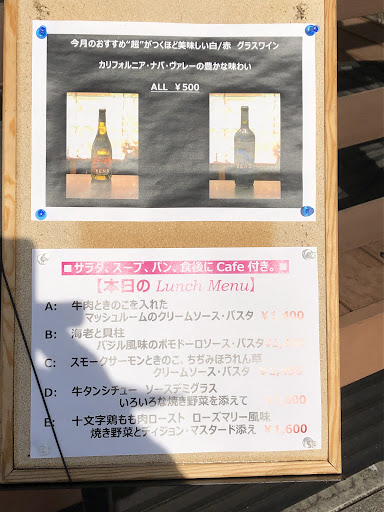 今月のおすすめ“超”がつくほど美味しい白/赤 グラスワイン
カリフォルニア・ナパ・ヴァレーの豊かな味わい
ALL ￥500
■サラダ、スープ、パン、食後に Cafe 付き。■
【本日の Lunch Menu】
A: 牛肉ときのこを入れた
マッシュルームのクリームソース・パスタ ￥1,400
B: 海老と貝柱
バジル風味のポモドーロソース・パスタ
C: スモークサーモンときのこ、ちぢみほうれん草
クリームソース・パスタ
D: 牛タンシチュー ソースデミグラス
いろいろな焼き野菜を添えて
E: 十文字鶏もも肉ロースト ローズマリー風味
焼き野菜とディジョン・マスタード添え ￥1,600